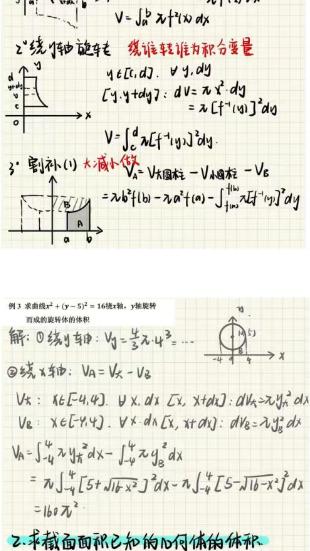 V=∫ₐᵇ π f²(x) dx
2° 绕y轴旋转 绕谁转谁为积分变量
y∈[c,d]. ∀ y,dy
[y,y+dy]: dV=πx²·dy
=π[f⁻¹(y)]²dy
V=∫_c^d π[f⁻¹(y)]²dy.
3° 割补(1) 大减小做
V_A= V大圆柱 - V小圆柱 - V_B
=πb²f(b)-πa²f(a)-∫_{f(a)}^{f(b)} π[f⁻¹(y)]²dy
例 3 求曲线x² + (y − 5)² = 16绕x轴，y轴旋转
而成的旋转体的体积
解: ①绕y轴: V_y=4/3 π·4³=…
②绕x轴: V_A=V大-V_B
V大: x∈[-4,4]. ∀ x.dx [x, x+dx]: dV大=πy大²dx
V_B: x∈[-4,4]. ∀ x.dx [x, x+dx]: dV_B=πy_B²dx
V_A=∫₋₄⁴ πy大²dx-∫₋₄⁴ πy_B²dx
=π∫₋₄⁴[5+√16-x²]²dx-π∫₋₄⁴[5-√16-x²]²dx
=160π².
2.求截面面积已知的几何体的体积.